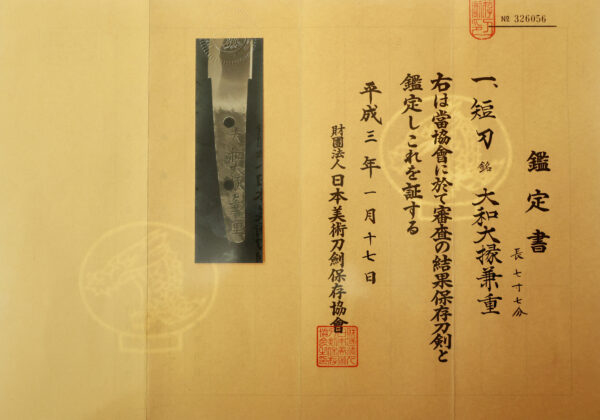 № 326056
鑑定書
一、短刀 銘 大和大掾兼重
長 七寸七分
右は當協會に於て審査の結果保存刀剣と
鑑定しこれを証する
平成三年一月十七日
財團法人 日本美術刀劍保存協會